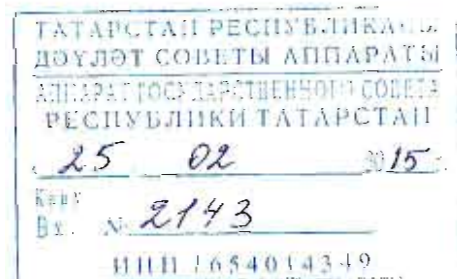 ТАТАРСТАН РЕСПУБЛИКАСЫ
ДӘҮЛӘТ СОВЕТЫ АППАРАТЫ
АППАРАТ ГОСУДАРСТВЕННОГО СОВЕТА
РЕСПУБЛИКИ ТАТАРСТАН
25 02 2015 г.
Вх. № 2143
ИНН 1654014349